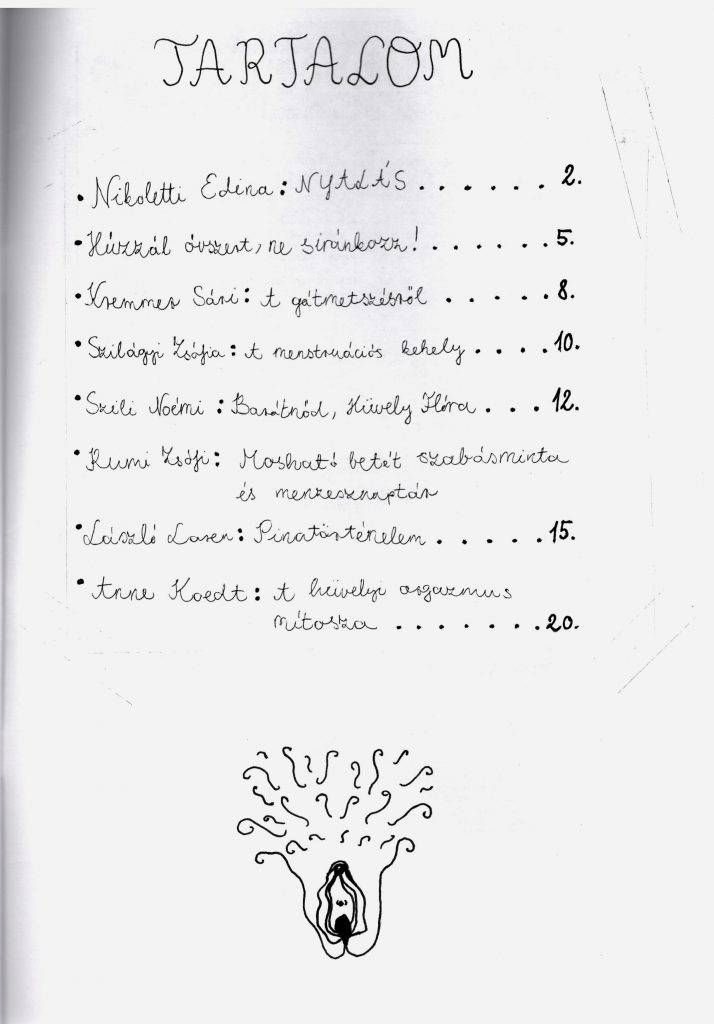 TARTALOM
• Nikoletti Edina: NYALÁS . . . . . . 2.
• Húzzál óvszert, ne siránkozz! . . . . . . 5.
• Kremmer Sári: A gátmetszésről . . . . . 8.
• Szilágyi Zsófia: A menstruációs kehely . . . . 10.
• Szili Noémi: Barátnőd, Hüvely Flóra . . . 12.
• Rumi Zsófi: Mosható betét szabásminta
és menzesznaptár
• László Laren: Pinatörténelem . . . . . 15.
• Anne Koedt: A hüvelyi orgazmus
mítosza . . . . . . . 20.